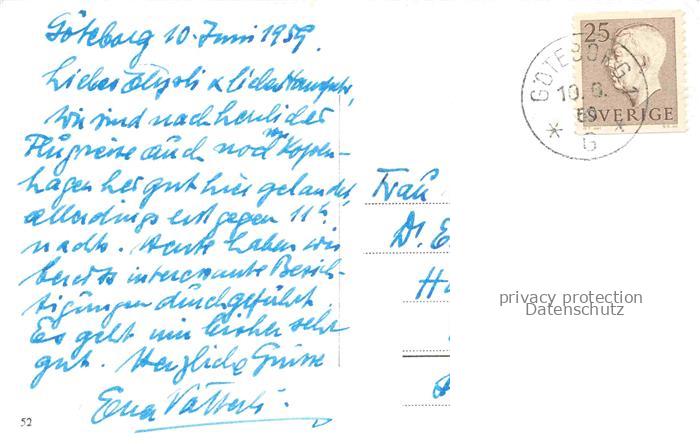 Göteborg 10. Juni 1959.
Liebes & liebe
Wir sind nach herrlicher
Flugreise auch noch von Kopen-
hagen her gut hier gelandet,
allerdings erst gegen 11 h.
nachts. Heute haben wir
bereits interessante Besich-
tigungen durchgeführt.
Es geht mir bisher sehr
gut. Herzliche Grüsse
52
25
SVERIGE
GÖTEBORG 1
10. 6.
59
Frau
Dr. E
H
privacy protection
Datenschutz